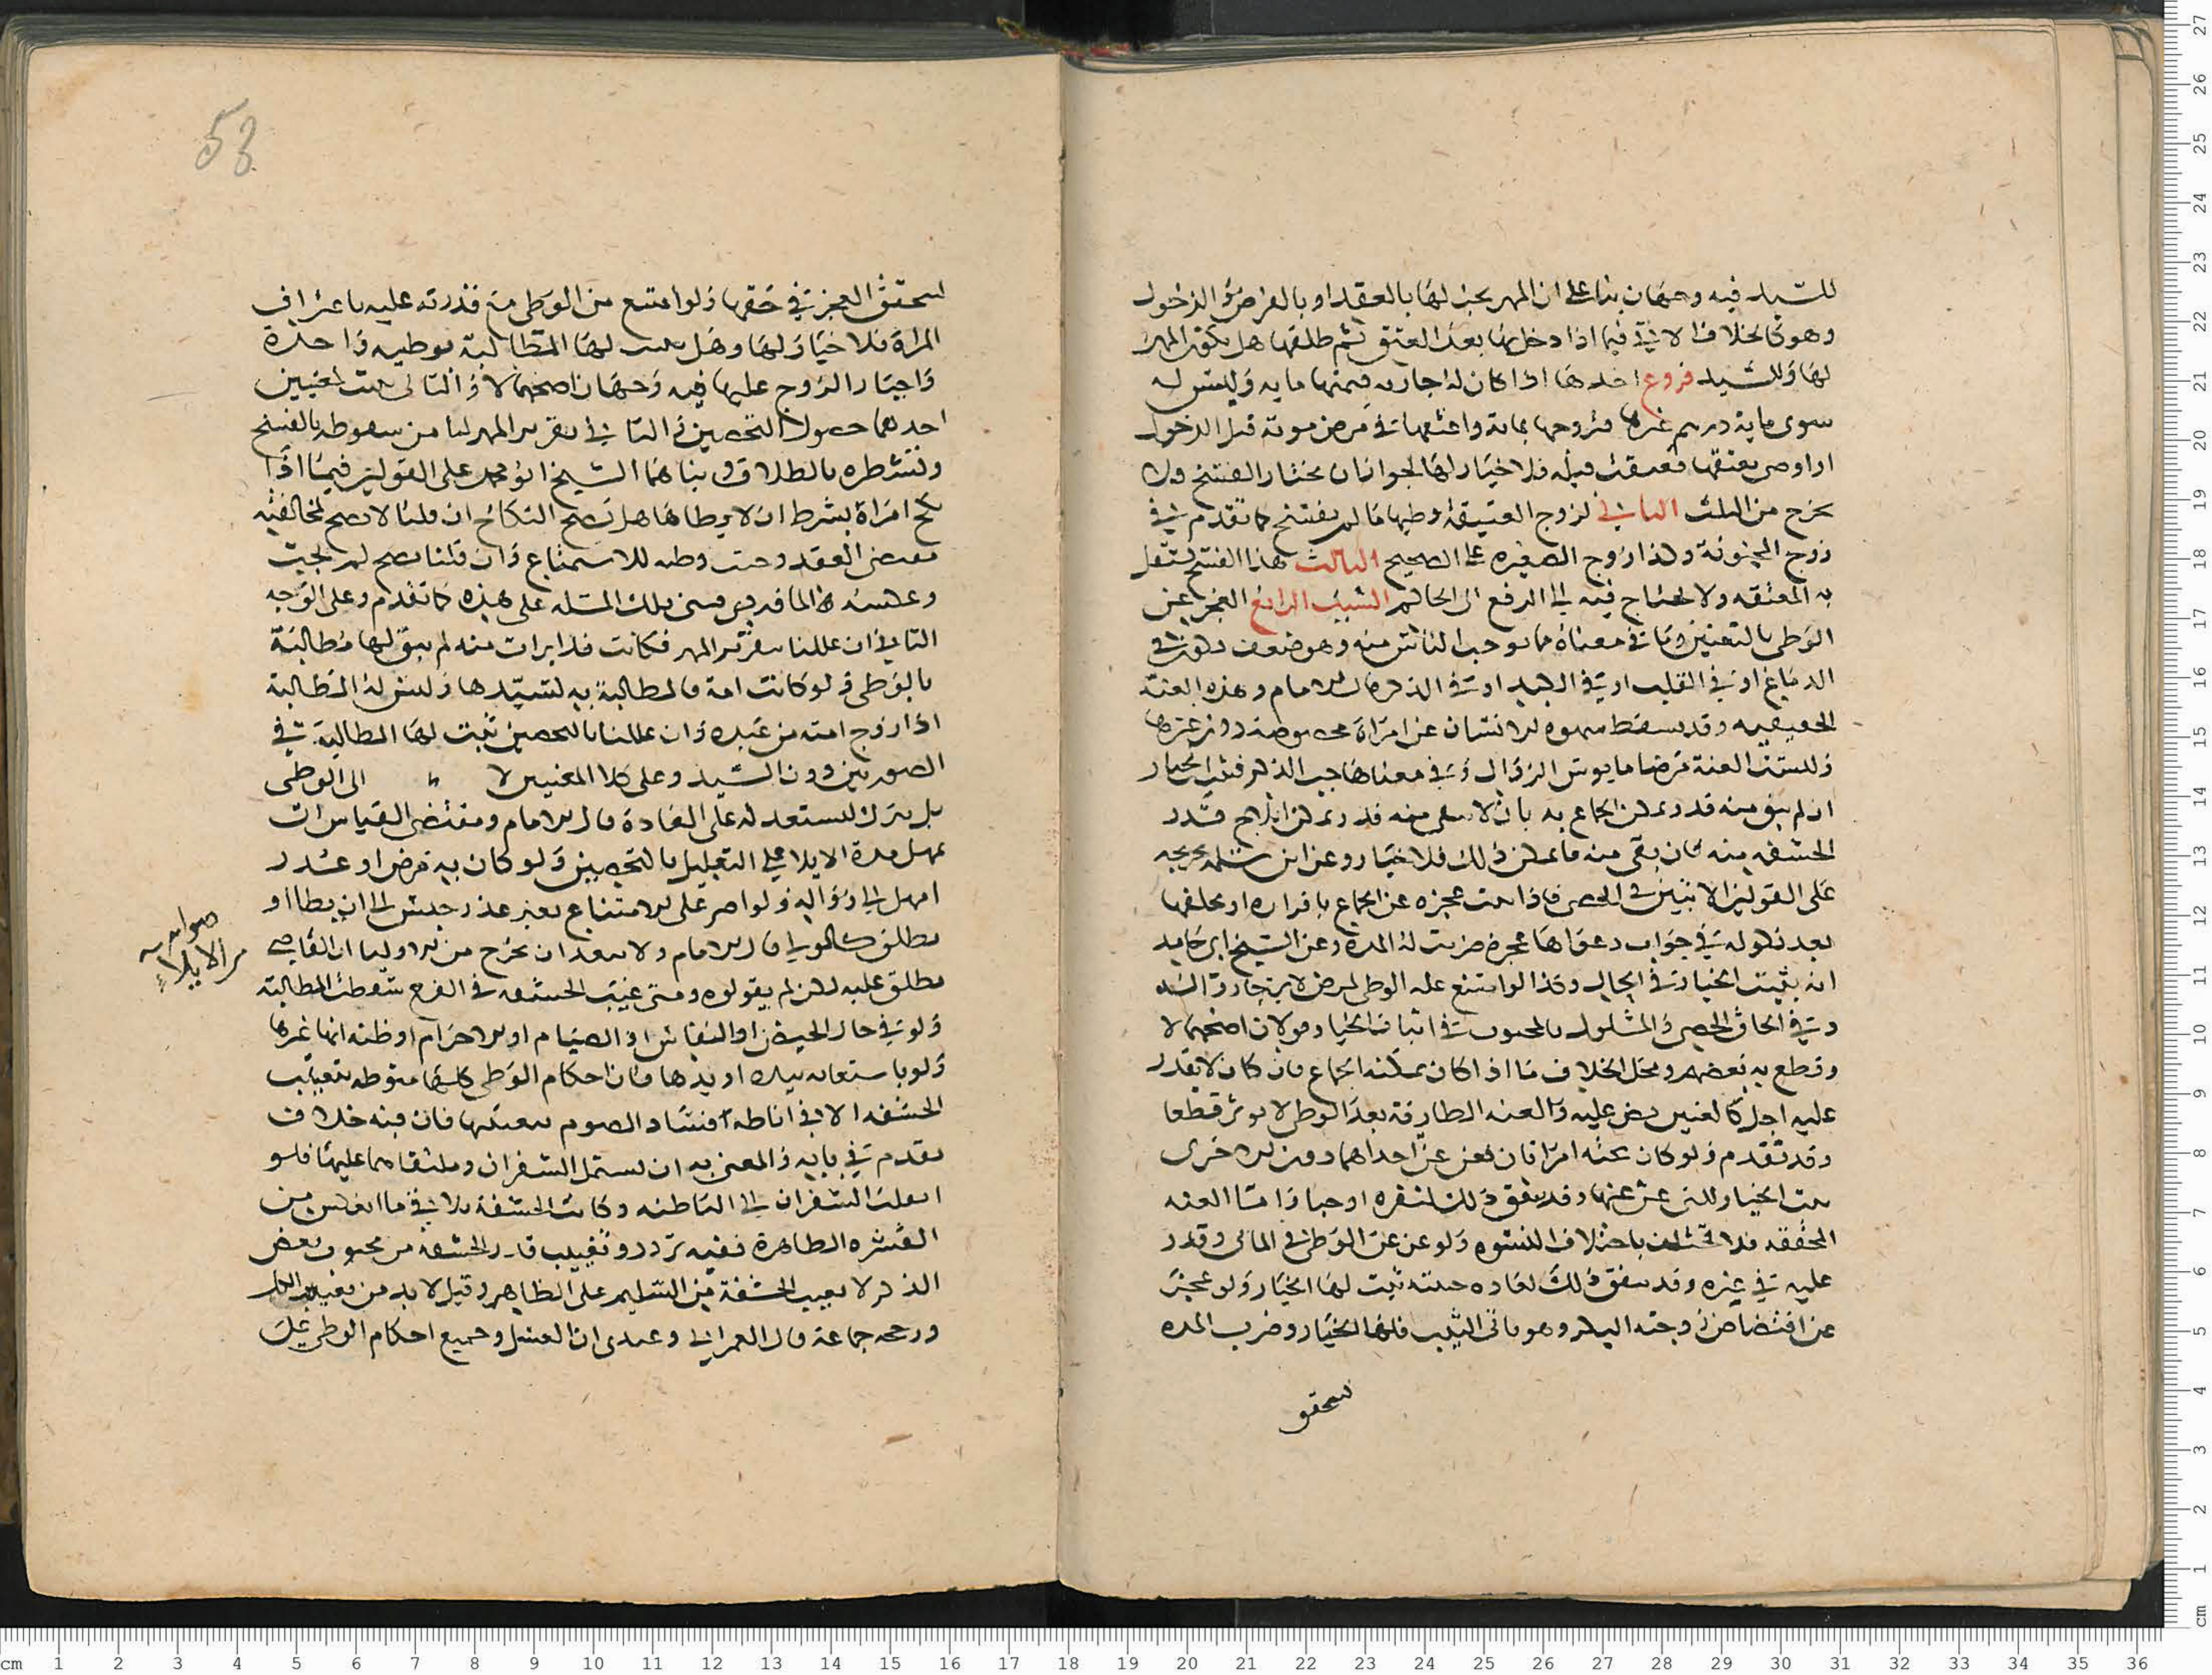 للسيد فيه وجهان بناء على ان المهر يجب لها بالعقد او بالفرض او الدخول
وهو كالخلاف الاتي فيما اذا دخل بها بعد العتق ثم طلقها هل يكون المهر
لها وللسيد فروع احدها اذا كان له جارية قيمتها ماية وليس له
سوى ماية درهم غيرها فزوجها بماية واعتقها في مرض موته قبل الدخول
او اوصى بعتقها فعتقت قبله فلا خيار لها لجواز ان تختار الفسخ ولا
تخرج من الثلث الثاني لزوج العتيقة وطيها ما لم يفسخ كما تقدم في
زوج المجنونة وكذا زوج الصغيرة على الصحيح الثالث هذا الفسخ تستقل
به المعتقة ولا تحتاج فيه الى الرفع الى الحاكم السبب الرابع العجز عن
الوطى بالتعنين وما في معناه مما يوجب الياس منه وهو ضعف يكون في
الدماغ او في القلب او في الكبد او في الذكر قال الامام وهذه العنة
الحقيقية وقد يسقط شهوة الانسان عن امراة مخصوصة دون غيرها
وليست العنة مرضا مايوس الزوال وفي معناها جب الذكر فيثبت الخيار
ان لم يبق منه قدر يمكن الجماع به بان لا يبقى منه قدر يمكن ايلاج قدر
الحشفة منه فان بقي منه ما يمكن ذلك فلا خيار وعن ابن سلمة تخريجه
على القولين الاتيين في الخصي فاذا ثبت عجزه عن الجماع باقراره او بحلفها
بعد نكوله في جواب دعواها عجزه ضربت له المدة وعن الشيخ ابي حامد
انه يثبت الخيار في الحال وكذا لو امتنع عليه الوطى لمرض لا يرجا زواله
وفي الحاق الخصي والمشلول بالمجبوب في اثبات الخيار قولان اصحهما لا
وقطع به بعضهم ومحل الخلاف ما اذا كان يمكنه الجماع فان كان لا يقدر
عليه اجل كالعنين نص عليه والعنة الطارية بعد الوطى لا تؤثر قطعا
وقد تقدم ولو كان تحته امراتان فعن عن احداهما دون الاخرى
ثبت الخيار للتي عن عنها وقد يتفق ذلك لنفرة او حيا واما العنة
المحققة فلا تختلف باختلاف النسوة ولو عن عن الوطى في الماتى وقدر
عليه في غيره وقد يتفق ذلك لعادة خبيثة ثبت لها الخيار ولو عجز
عن افتضاض زوجته البكر وهو ياتي الثيب فلها الخيار وضرب المدة
لتحقق
58
لتحقق العجز في حقها ولو امتنع من الوطى مع قدرته عليه باعتراف
المراة فلا خيار لها وهل يثبت لها المطالبة بوطية واحدة
واجبار الزوج عليها فيه وجهان اصحهما لا والثاني يثبت لمعنيين
احدهما حصول التحصين والثاني تقرير المهر لها من سقوطه بالفسخ
وتشطره بالطلاق وبناهما الشيخ ابو محمد على القولين فيما اذا
نكح امراة بشرط ان لا يطاها هل يصح النكاح ان قلنا لا يصح لمخالفته
مقتضى العقد وجبت وطية للاستمتاع وان قلنا يصح لم تجب
وعكسه الماوردي فبنى تلك المسئلة على هذه كما تقدم وعلى الوجه
الثاني ان عللنا بتقرير المهر فكانت قد ابرات منه لم يبق لها مطالبة
بالوطى ولو كانت امة فالمطالبة به لسيدها وليس له المطالبة
اذا زوج امته من عبده وان عللنا بالتحصين ثبت لها المطالبة في
الصورتين دون السيد وعلى كلا المعنيين لا الى الوطى
بل يترك ليستعد له على العادة قال الامام ومقتضى القياس ان
يمهل مدة الايلا على التعليل بالتحصين ولو كان به مرض او عذر
امهل الى زواله ولو اصر على الامتناع بغير عذر حبس الى ان يطا او
يطلق كالمولي قال الامام ولا يبعد ان يخرج من الاوليا ان القاضي
صوابه
من الايلاء
يطلق عليه لكن لم يقولوه ومتى غيب الحشفة في الفرج سقطت المطالبة
ولو في حال الحيض او النفاس او الصيام او الاحرام او ظنه انها غيرها
ولو باستعانة بيده او يدها فان احكام الوطى كلها منوطة بتغييب
الحشفة الا في اناطة افساد الصوم بتعمدها فان فيه خلاف
تقدم في بابه والمعنى به ان يشتمل الشفران وملتقاهما عليها فلو
انقلب الشفران الى الباطن وكانت الحشفة تلاقي ما انعكس من
البشرة الظاهرة ففيه تردد وتغييب قدر الحشفة من مجبوب بعض
الذكر لا تغييب الحشفة من السليم على الظاهر وقيل لا بد من تغييب الكل
ورجحه جماعة قال العمراني وعندي ان الغسل وجميع احكام الوطى على